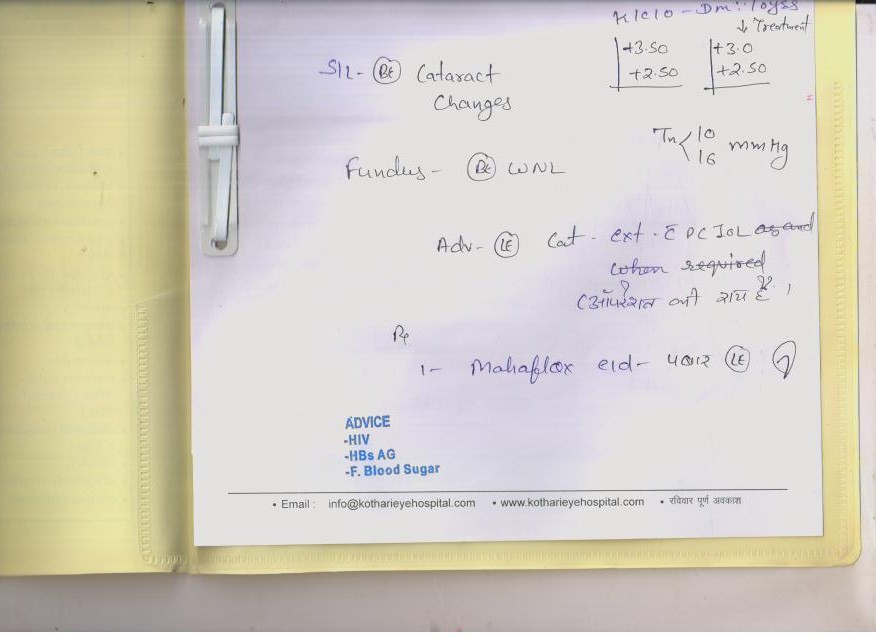 K/C/O - Dm: 10yrs
↓ Treatment
+3.50 +3.0
+2.50 +2.50
S/L - BE Cataract
Changes
Tn < 10
16 mmHg
Fundus - BE WNL
Adv - LE Cat. ext. c̄ PC IOL as and
when required
(ऑपरेशन की राय है।
Rx
1- Mahaflox eld - ४बार LE
ADVICE
-HIV
-HBs AG
-F. Blood Sugar
• Email : info@kotharieyehospital.com • www.kotharieyehospital.com • रविवार पूर्ण अवकाश